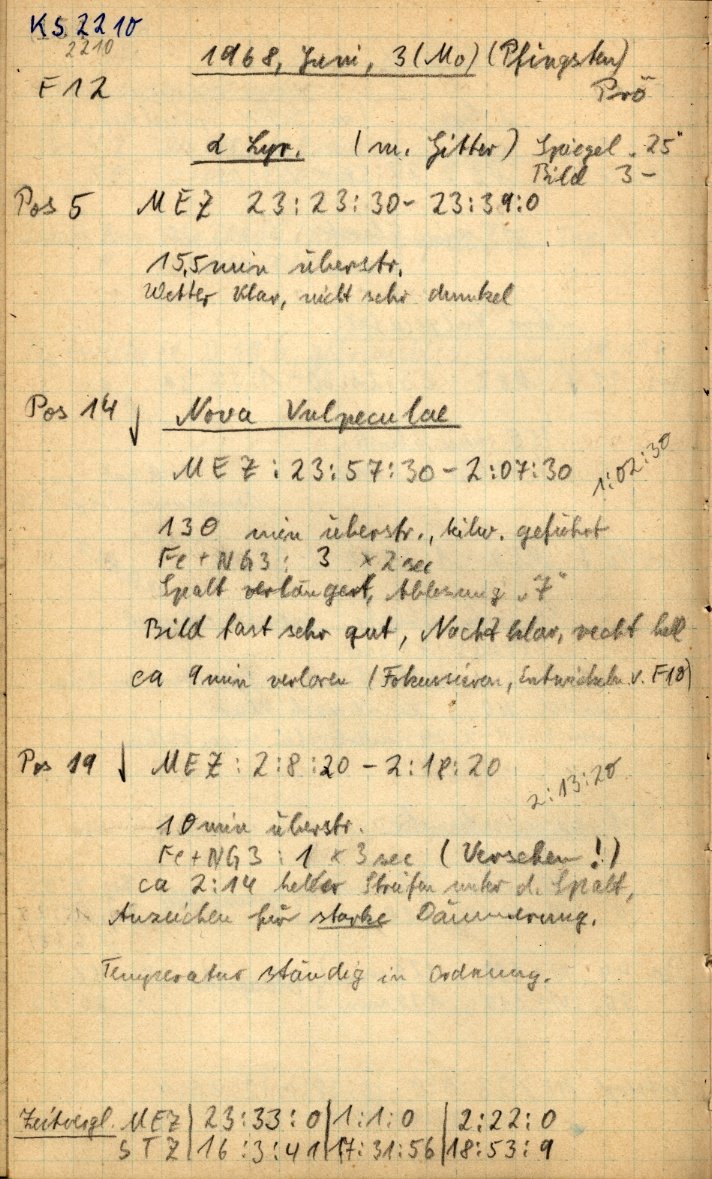 KS 2210
2210
1968, Juni, 3 (Mo) (Pfingsten)
F12
Prö
α Lyr. (m. Gitter) Spiegel „25"
Bild 3-
Pos 5 MEZ 23:23:30 - 23:39:0
15,5 min überstr.
Wetter klar, nicht sehr dunkel
Pos 14 ↓ Nova Vulpeculae
MEZ: 23:57:30 - 2:07:30
1:02:30
130 min überstr., teilw. geführt
Fe + NG3: 3 × 2 sec
Spalt verlängert, Ablesung „7"
Bild fast sehr gut, Nacht klar, recht hell
ca 9 min verloren (Fokussieren, Entwickeln v. F10)
Pos 19 ↓ MEZ: 2:8:20 - 2:18:20
2:13:20
10 min überstr.
Fe + NG3: 1 × 3 sec (Versehen!)
ca 2:14 heller Streifen unter d. Spalt,
Anzeichen für starke Dämmerung.
Temperatur ständig in Ordnung.
Zeitvergl. MEZ | 23:33:0 | 1:1:0 | 2:22:0
STZ | 16:3:41 | 17:31:56 | 18:53:9